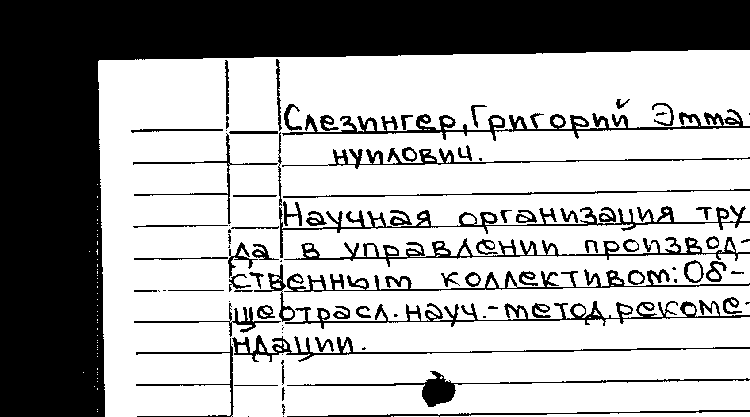 Слезингер, Григорий Эмма-
нуилович.
Научная организация тру
да в управлении производ-
ственным коллективом: Об-
щеотрасл. науч.-метод. рекоме-
ндации.